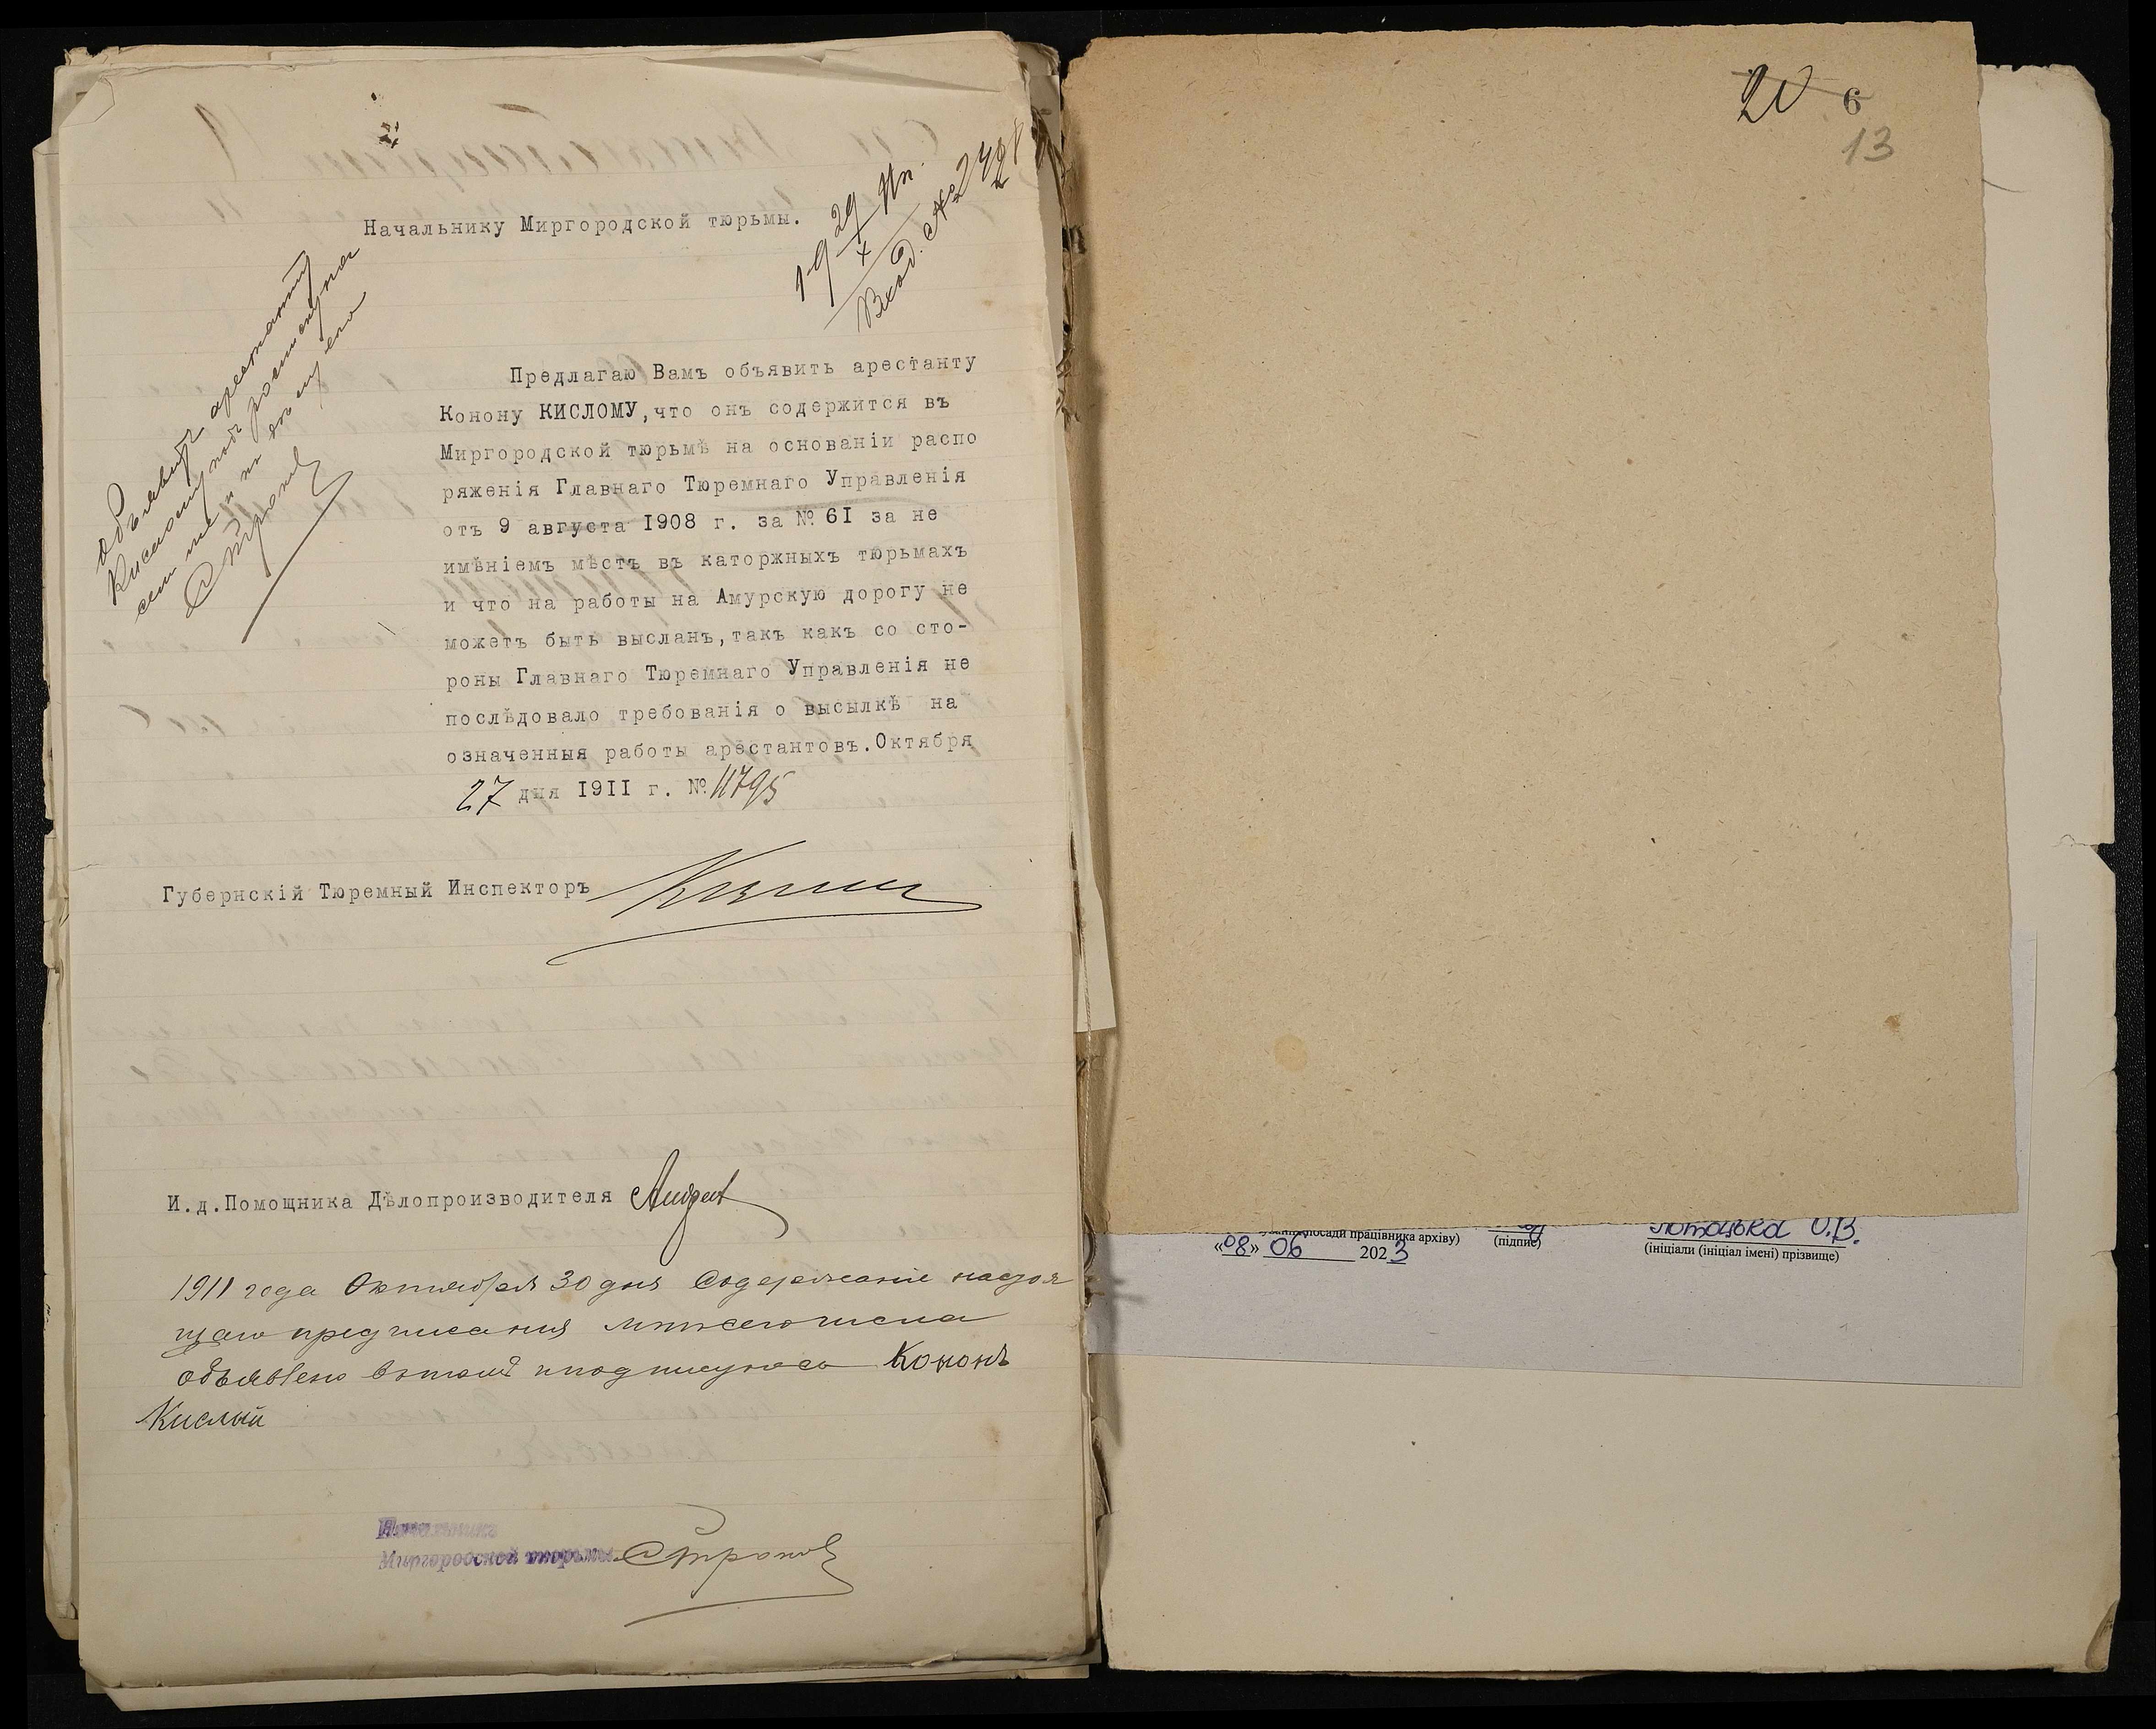 Начальнику Миргородской тюрьмы.
19 29/X 11 г.
Вход. №
Объявить арестанту
Кислому под росписку на
сем же и
Стронов
Предлагаю Вамъ объявить арестанту
Конону КИСЛОМУ,что онъ содержится въ
Миргородской тюрьмѣ на основаніи распо
ряженія Главнаго Тюремнаго Управленія
отъ 9 августа 1908 г. за № 61 за не
имѣніемъ мѣстъ въ каторжныхъ тюрьмахъ
и что на работы на Амурскую дорогу не
можетъ быть высланъ,такъ какъ со сто-
роны Главнаго Тюремнаго Управленія не
послѣдовало требованія о высылкѣ на
означенныя работы арестантовъ.Октября
27 дня 1911 г. № 11795
Губернскій Тюремный Инспекторъ
И.д.Помощника Дѣлопроизводителя
1911 года Октября 30 дня Содержаніе настоя
щаго предписания мне сего числа
объявлено в томъ и подписуюсь Кононъ
Кислый
Начальникъ
Миргородской тюрьмы Стронов
20 6
13
посади працівника архіву) (підпис) О.В.
«08» 06 2023 (ініціали (ініціал імені) прізвище)